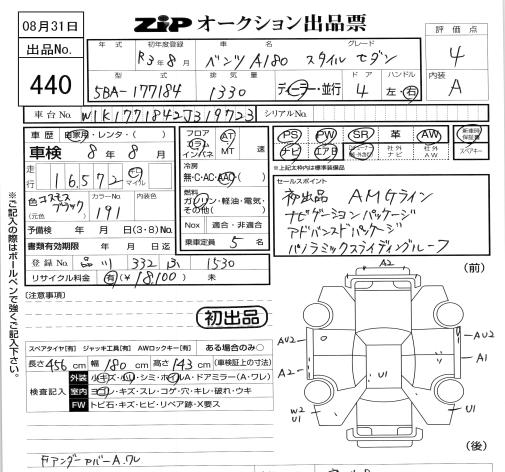 08月31日
ZiPオークション出品票
評価点
4
出品No.
440
年式
初年度登録
R3年8月
車名
グレード
ベンツA180 スタイル セダン
型式
5BA-177184
排気量
1330
ディーラー・並行
ドア
4
ハンドル
左・右
内装
A
車台No.
W1K1771842J319723
シリアルNo.
車歴 自家用・レンタ・( )
車検 8年8月
走行 16,572 km マイル
色 コスモスブラック
(元色)
カラーNo.
191
内装色
予備検 年 月 日(3・8)No.
書類有効期限 年 月 日迄
登録No. 品川 332 そ 1530
リサイクル料金 有(¥18,100) 未
フロア
コラム
インパネ
AT
MT
速
冷房
無・C・AC・AAC
燃料
ガソリン・軽油・電気・その他( )
Nox 適合・非適合
乗車定員 5 名
PS PW SR 革 AW
ナビ エアB
社外ナビ
社外AW
新車時保証書
スペアキー
※上記太枠内は標準装備品
セールスポイント
初出品 AMGライン
ナビゲーションパッケージ
アドバンスドパッケージ
パノラミックスライディングルーフ
[注意事項]
初出品
スペアタイヤ[有] ジャッキ工具[有] AWロックキー[有] ある場合のみ○
長さ456cm 幅180cm 高さ143cm (車検証上の寸法)
検査記入
外装 小キズ・小凹・シミ・ホイルA・ドアミラー(A・ワレ)
室内 ヨゴレ・キズ・スレ・コゲ・穴・キレ・破れ・ウキ
FW トビ石・キズ・ヒビ・リペア跡・X要ス
Fアンダーカバー A.ワレ
(前)
A2
AU2
AU2
A2
A1
U1
W2
U1
U1
(後)
※ご記入の際はボールペンで強くご記入下さい。